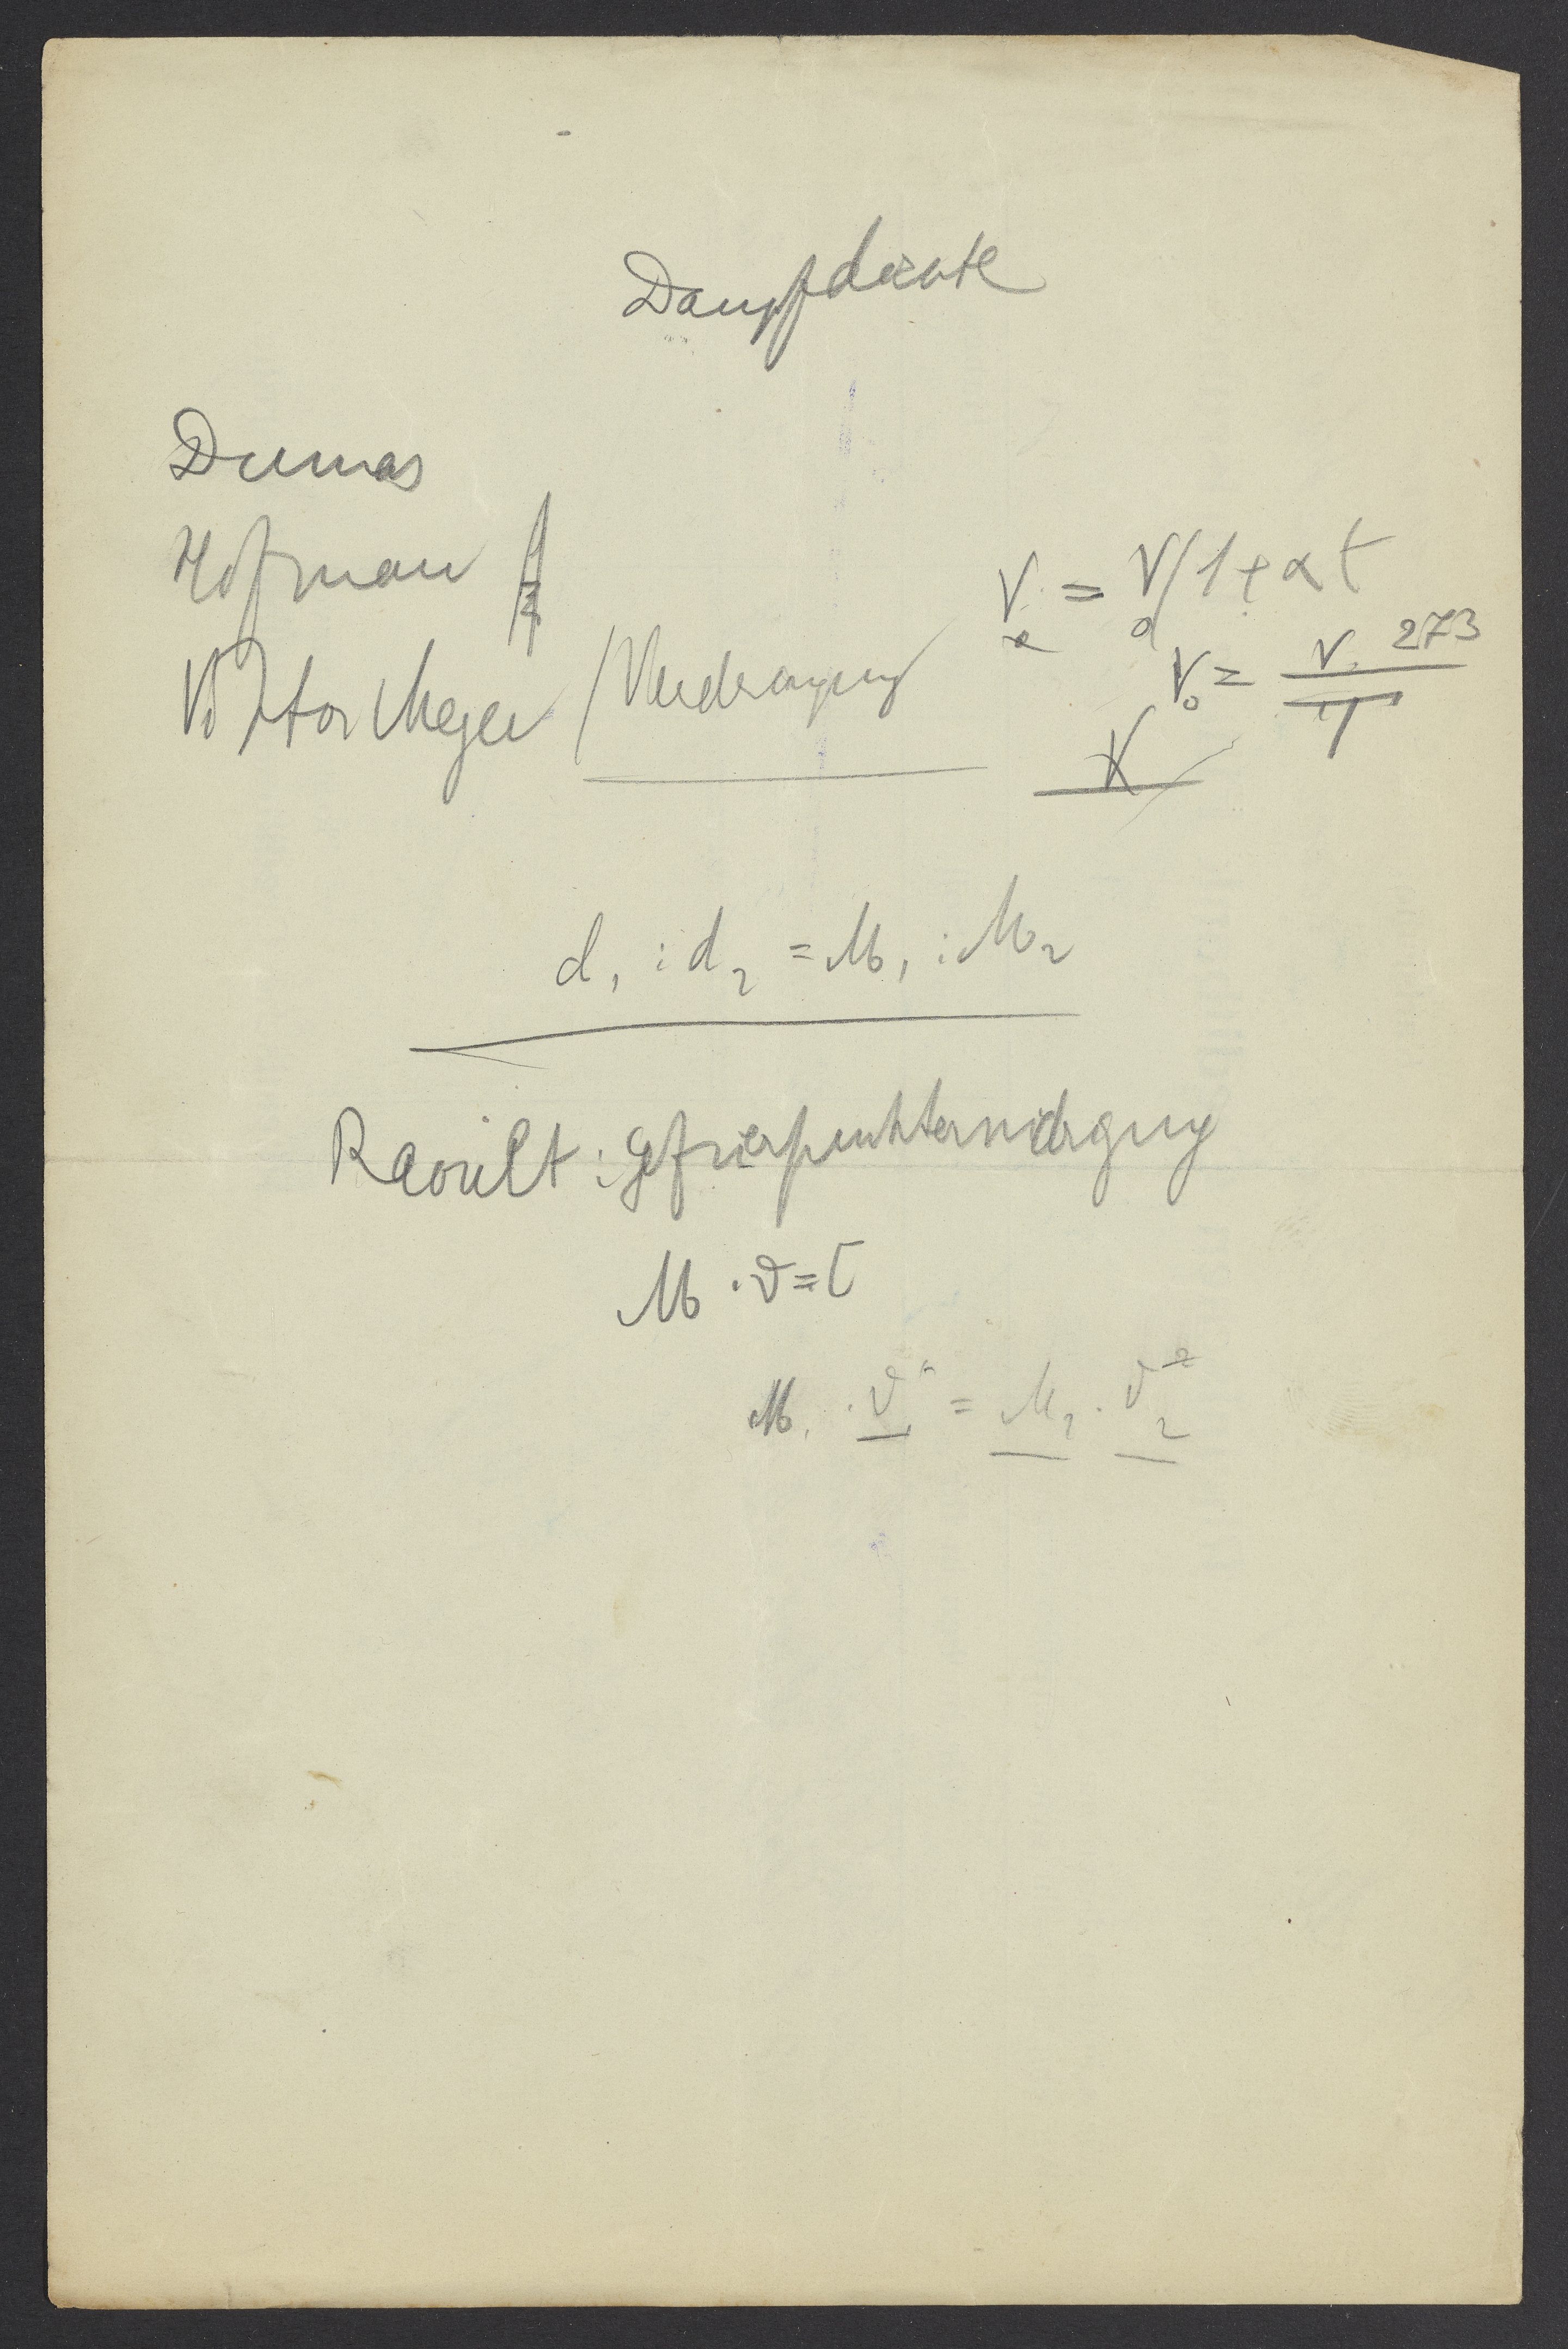 Dampfdichte
Dumas
Hofman
Viktor Meyer / Verdrängung
V = V₀(1+αt
V₀ = V. 273 / T
V
d₁ : d₂ = M₁ : M₂
Raoult : Gefrierpunkterniedrigung
M . ϑ = C
M₁ . ϑ₁ = M₂ . ϑ₂